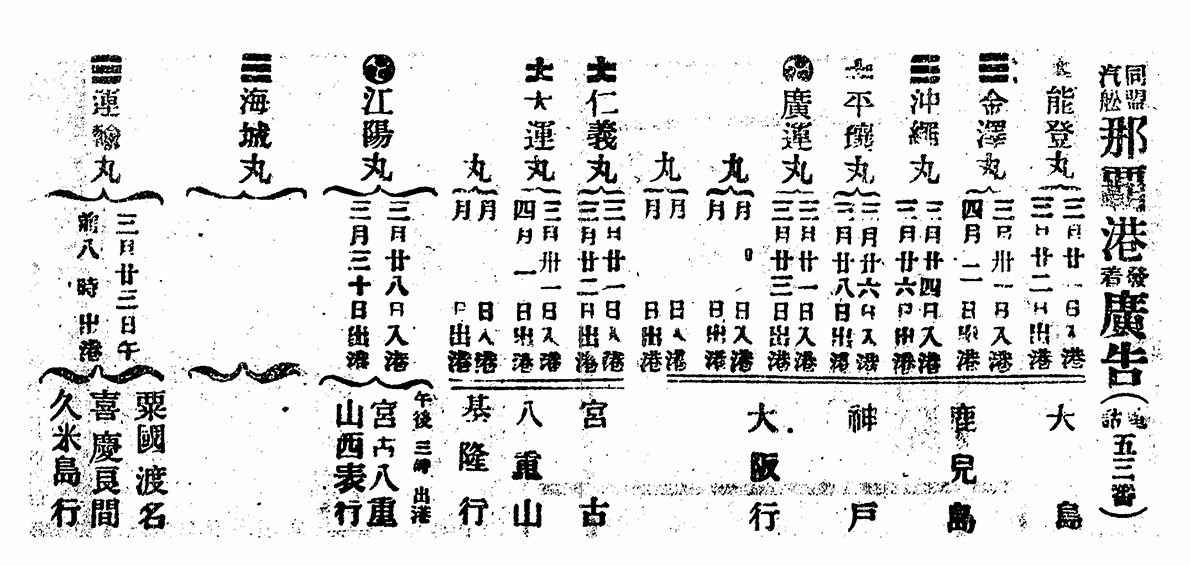 同盟汽船 那覇港發着廣告（電話五三番）
能登丸 三月廿一日入港 三月廿二日出港
金澤丸 三月卅一日入港 四月二日出港
沖繩丸 三月廿四日入港 三月廿六日出港
平壤丸 三月廿六日入港 三月廿八日出港
廣運丸 三月廿一日入港 三月廿三日出港
丸 月 日入港 月 日出港
丸 月 日入港 月 日出港
大島 鹿兒島 神戸 大阪行
仁義丸 三月廿一日入港 三月廿二日出港
大運丸 三月卅一日入港 四月一日出港
丸 月 日入港 月 日出港
宮古 八重山 基隆行
江陽丸 三月廿八日入港 三月三十日出港
午後三時出港
宮古八重
山西表行
海城丸
運輸丸 三月廿三日午
前八時出港
粟國渡名
喜慶良間
久米島行